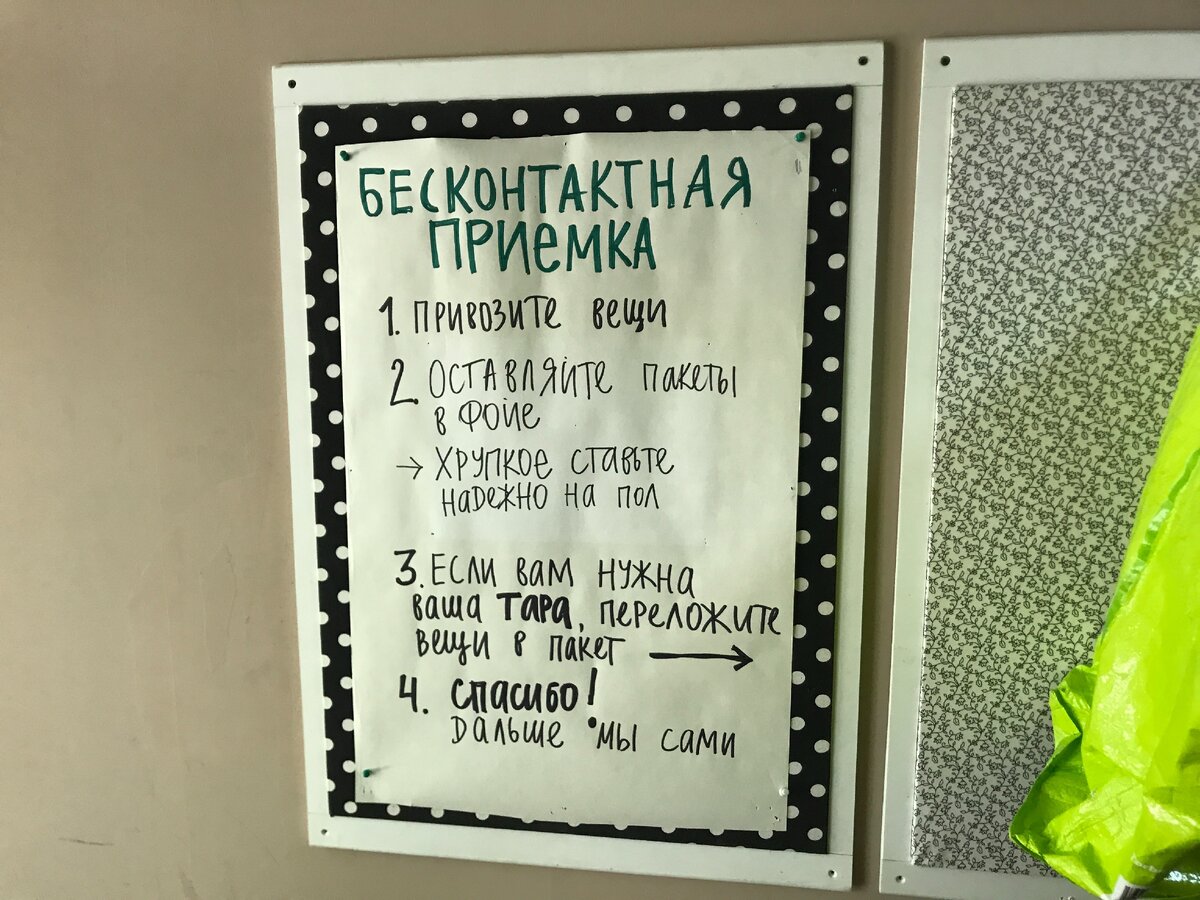 БЕСКОНТАКТНАЯ
ПРИЕМКА
1. ПРИВОЗИТЕ ВЕЩИ
2. ОСТАВЛЯЙТЕ ПАКЕТЫ
В ФОЙЕ
→ ХРУПКОЕ СТАВЬТЕ
НАДЕЖНО НА ПОЛ
3. ЕСЛИ ВАМ НУЖНА
ВАША ТАРА, ПЕРЕЛОЖИТЕ
ВЕЩИ В ПАКЕТ →
4. СПАСИБО!
ДАЛЬШЕ МЫ САМИ